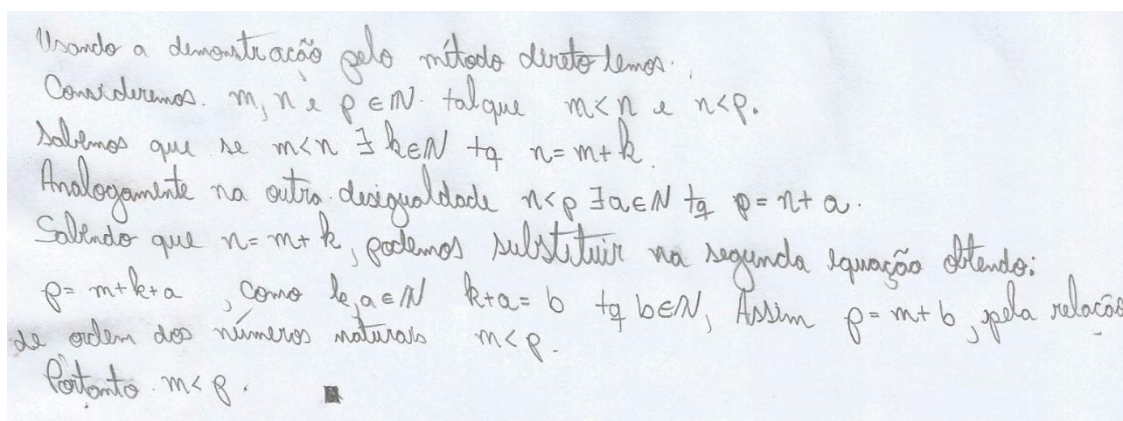 Usando a demonstração pelo método direto temos.
Consideremos. m, n e p ∈ ℕ. tal que m<n e n<p.
Sabemos que se m<n ∃ k∈ℕ tq n=m+k.
Analogamente na outra desigualdade n<p ∃a∈ℕ tq p=n+a.
Sabendo que n=m+k, podemos substituir na segunda equação obtendo:
p=m+k+a, como k,a∈ℕ k+a=b tq b∈ℕ, Assim p=m+b, pela relação
de ordem dos números naturais m<p.
Portanto m<p. ■